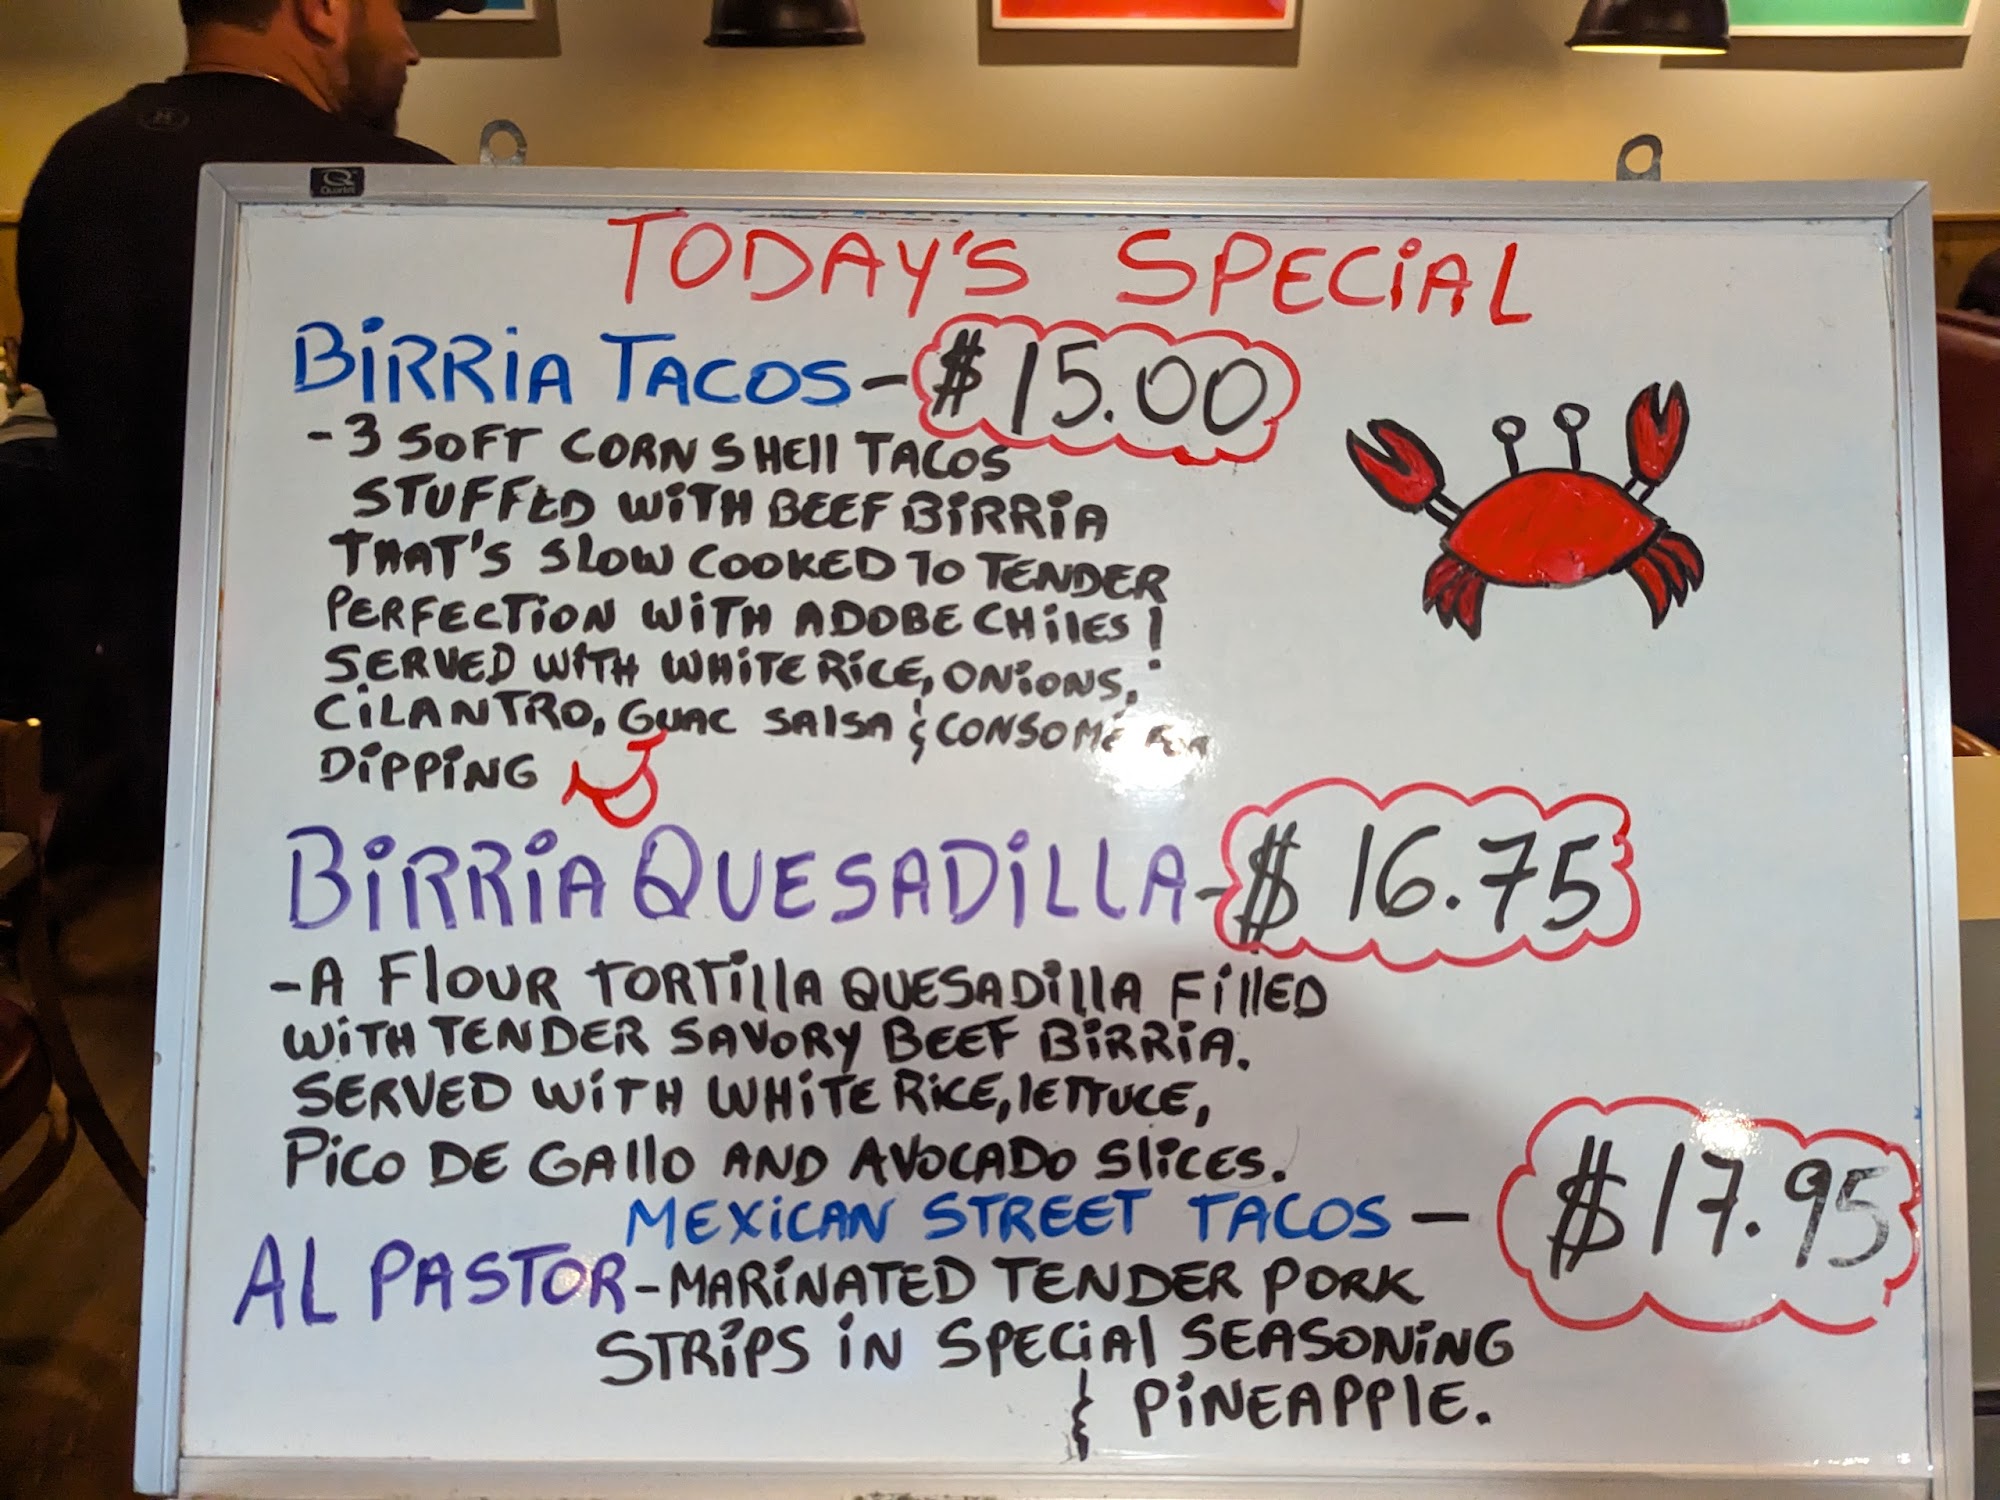 Quartet
TODAY'S SPECIAL
BIRRIA TACOS - $15.00
- 3 SOFT CORN SHELL TACOS
STUFFED WITH BEEF BIRRIA
THAT'S SLOW COOKED TO TENDER
PERFECTION WITH ADOBE CHILES!
SERVED WITH WHITE RICE, ONIONS,
CILANTRO, GUAC SALSA & CONSOME
DIPPING
BIRRIA QUESADILLA - $16.75
- A FLOUR TORTILLA QUESADILLA FILLED
WITH TENDER SAVORY BEEF BIRRIA.
SERVED WITH WHITE RICE, LETTUCE,
PICO DE GALLO AND AVOCADO SLICES.
MEXICAN STREET TACOS - $17.95
AL PASTOR - MARINATED TENDER PORK
STRIPS IN SPECIAL SEASONING
& PINEAPPLE.